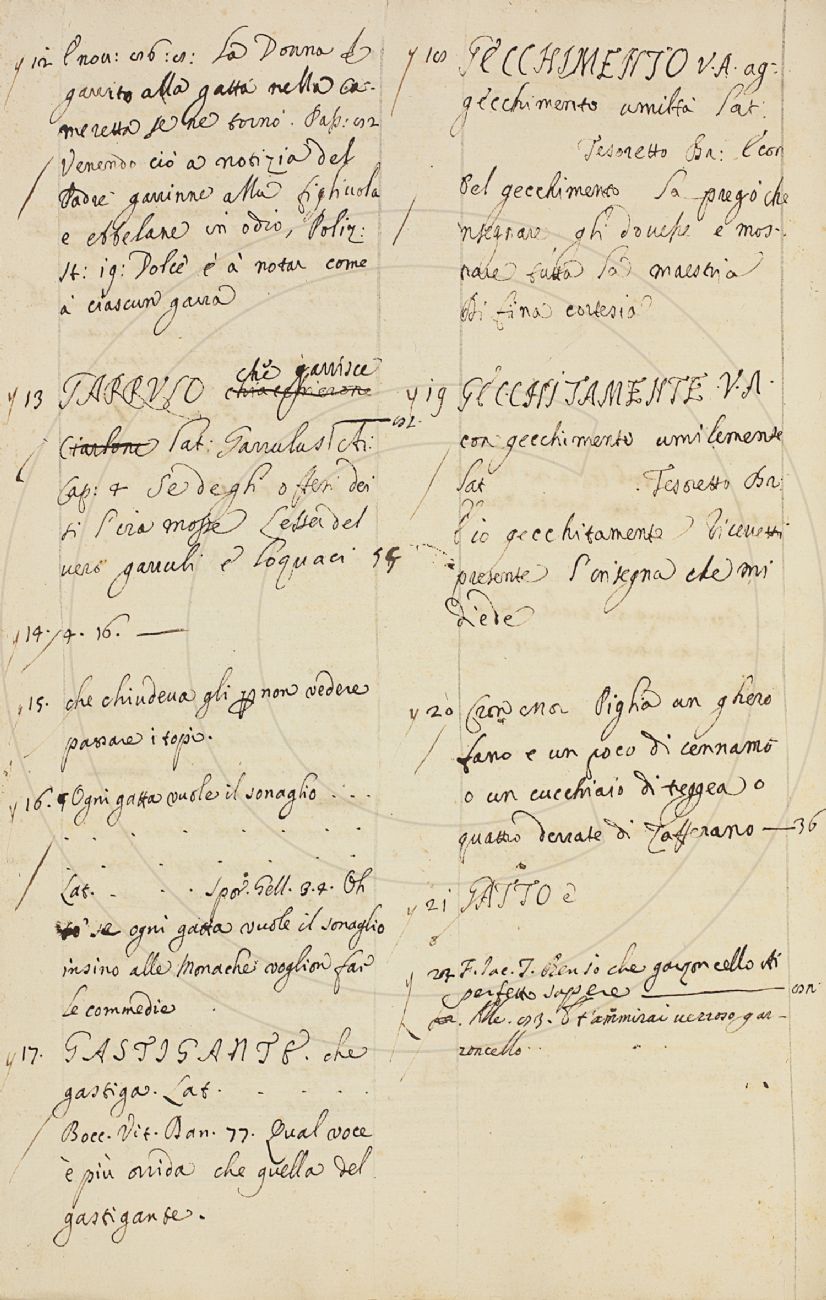 y 12 E nov: : La Donna
garrito alla gatta nella ca-
meretta se ne tornò. Pass:
Venendo ciò a notizia del
Padre garrinne alla figliuola
e ebbelane in odio, Poliz:
St: 19: Dolce è à notar come
à ciascun garra
y 13 GARRULO che garrisce chiacchierone
Ciarlone Lat: Garrulus
Cap: 4 Se degli osteri dei
ti l'ira mosse Lesser del
vero garruli e loquaci
y 14. 4. 16. —
y 15. che chiudeva gli non vedere
passare i topi.
y 16. Ogni gatta vuole il sonaglio . . .
. . . . . . . .
. . . . . . . .
Lat. . . . Spor. Gell. 3. 4. Oh
se ogni gatta vuole il sonaglio
insino alle Monache voglion far
le commedie
y 17. GASTIGANTE. che
gastiga. Lat. . . . . .
Bocc. Vit. Dan. 77. Qual voce
è più orrida che quella del
gastigante.
y 18 GECCHIMENTO V.A. ag-
gecchimento umiltà Lat:
Tesoretto Br: E con
bel gecchimento La pregò che
nsegnare gli douche e mos-
rare tutta la maestria
Di fina cortesia
y 19 GECCHITAMENTE V.A.
con gecchimento umilemente
Lat . Tesoretto Br:
E io gecchitamente Ricevetti
presente l'insegna che mi
diede
y 20 Cron Mor Piglia un ghero
fano e un poco di cennamo
o un cucchiaio di teggea o
quattro derrate di Zafferano — 36
y 21 GATTO è
F. Iac. T. Ben so che garzoncello
perfetto sapere —
Alle. T'ammirai vezzoso gar-
zoncello.